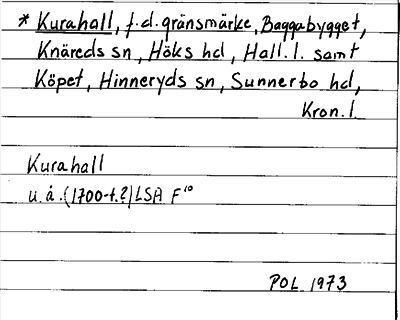 * Kurahall, f.d. gränsmärke, Baggabygget,
Knäreds sn, Höks hd, Hall. l. samt
Köpet, Hinneryds sn, Sunnerbo hd,
Kron. l.
Kurahall
u. å. (1700-t.?) LSA F¹⁰
POL 1973